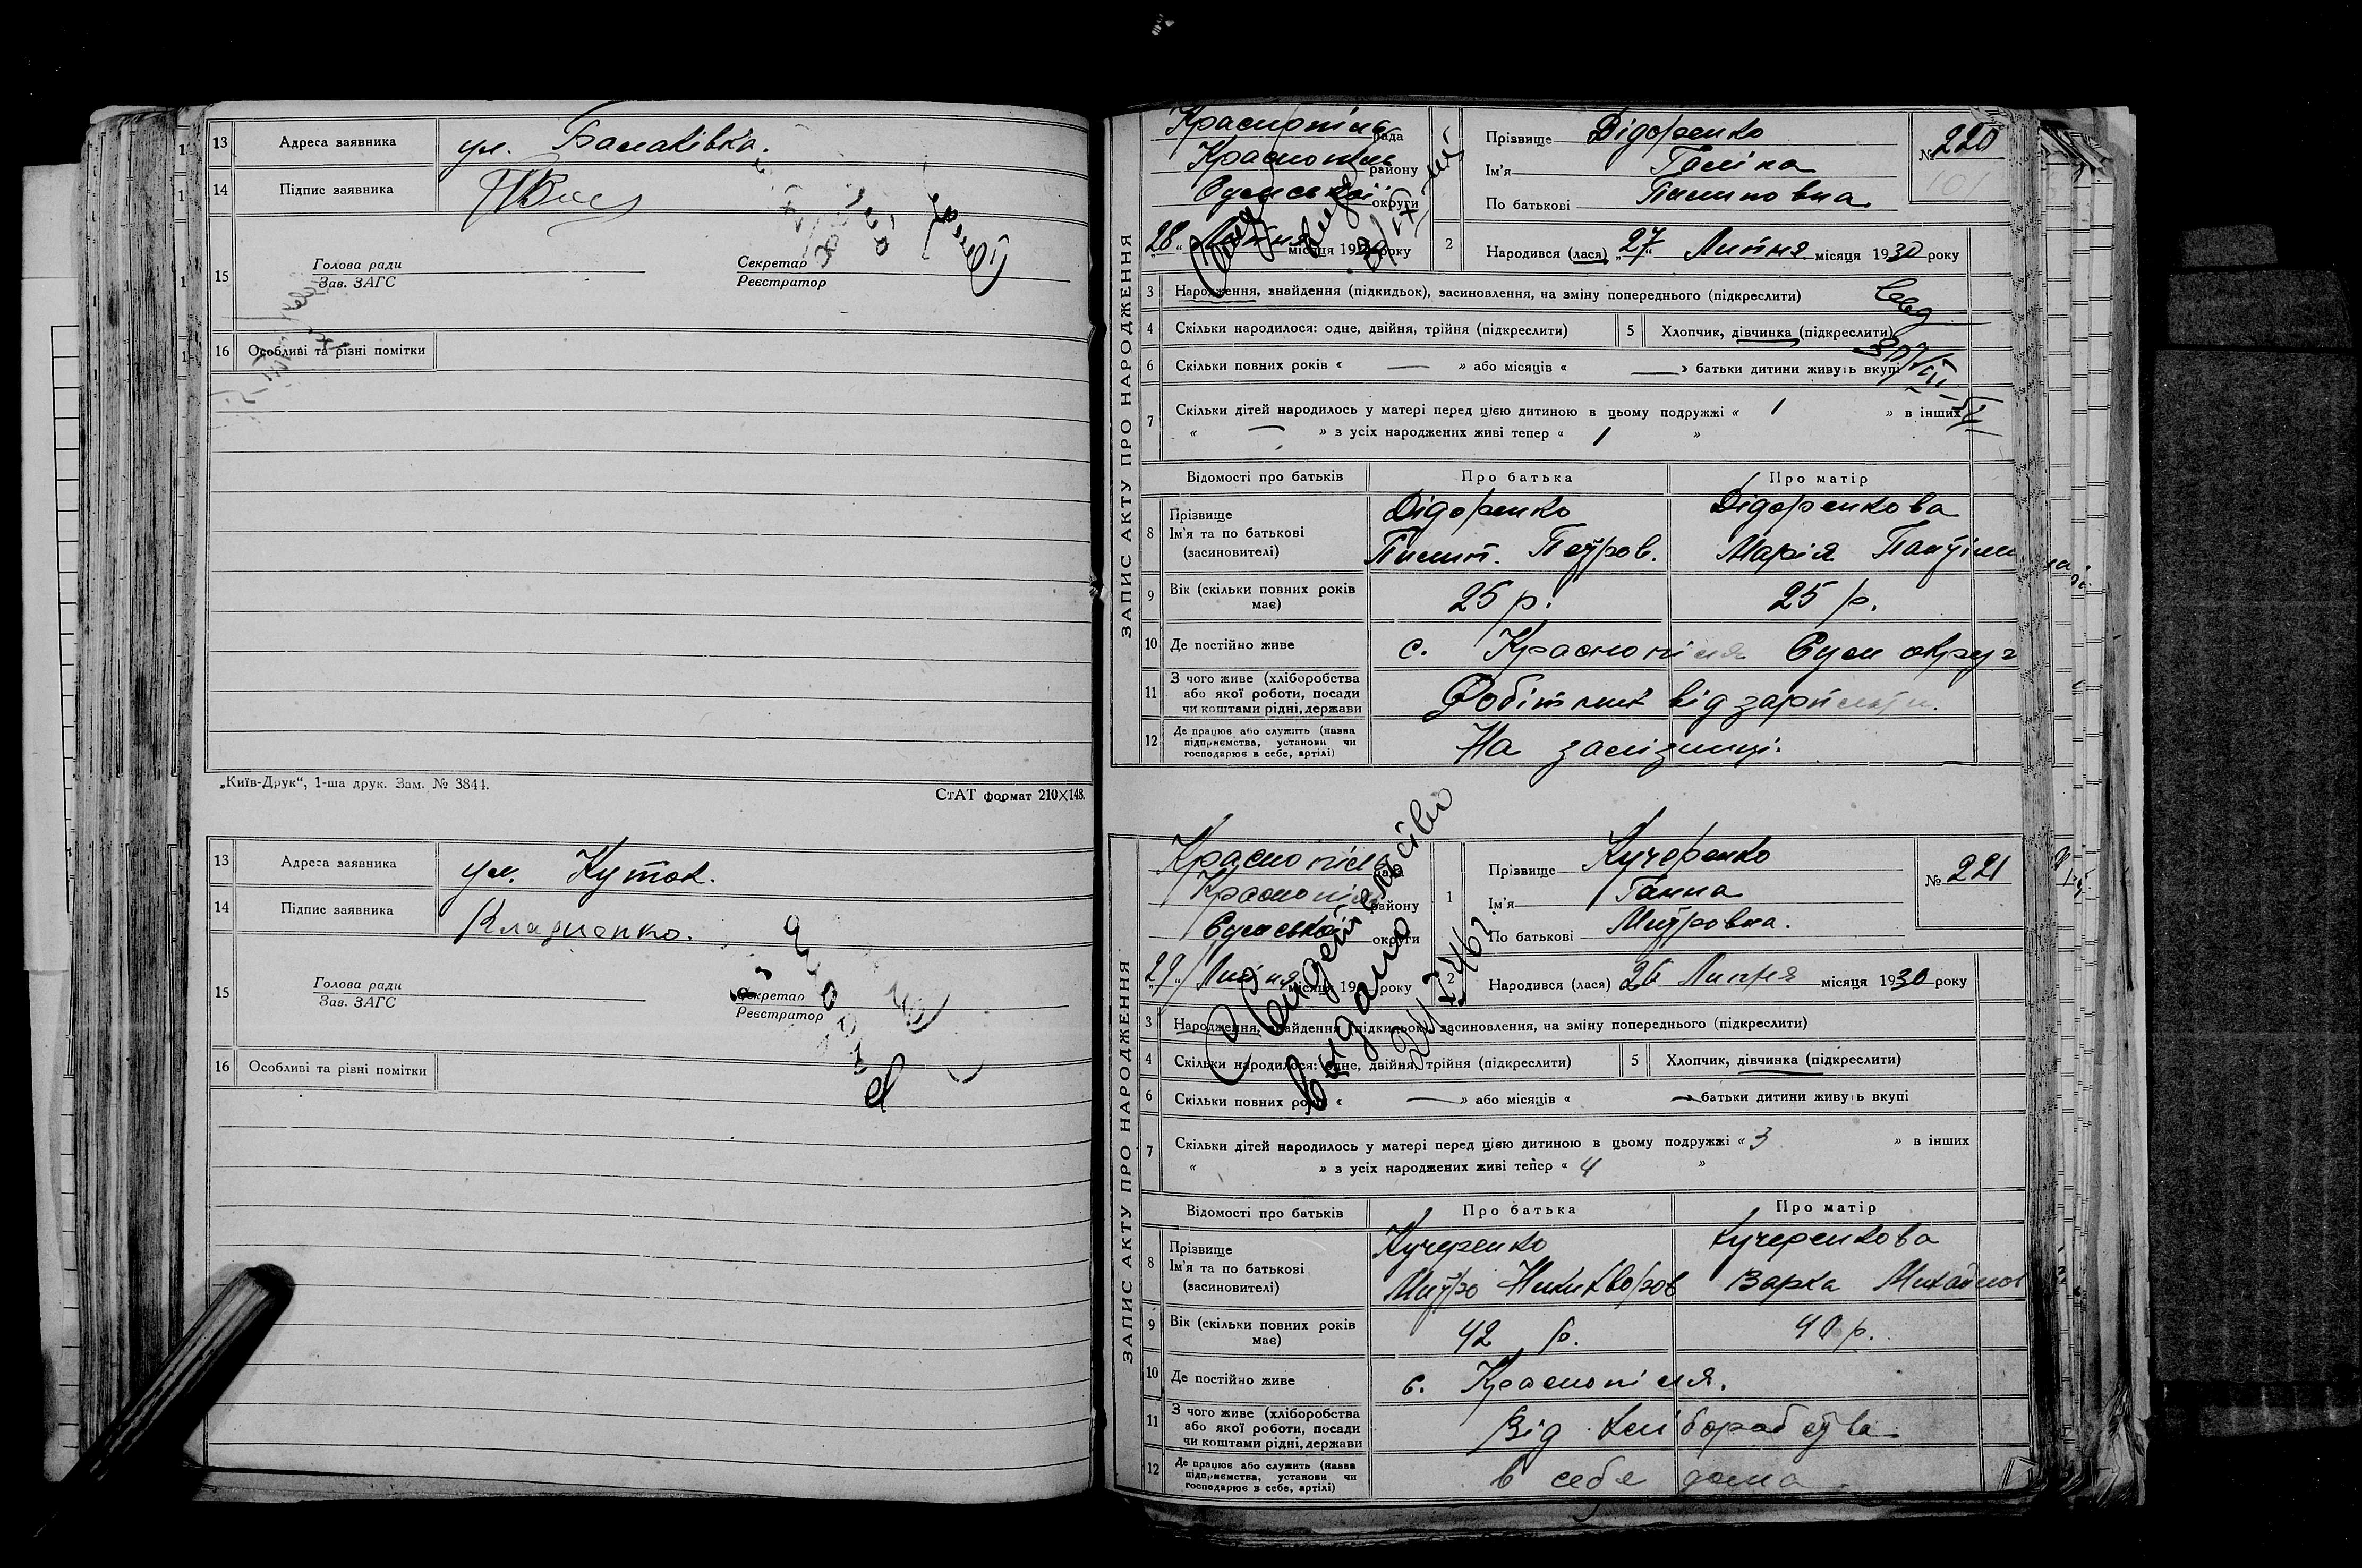 13 Адреса заявника ул. Бамаківка.
14 Підпис заявника
15 Голова ради Секретар
Зав. ЗАГС Реєстратор
16 Особливі та різні помітки
„Київ-Друк“, 1-ша друк. Зам. № 3844.
СтАТ формат 210×148.
13 Адреса заявника ул. Куток.
14 Підпис заявника
15 Голова ради Секретар
Зав. ЗАГС Реєстратор
16 Особливі та різні помітки
ЗАПИС АКТУ ПРО НАРОДЖЕННЯ
Краснопіль рада
Краснопіль району
Сумської округи
„28“ Липня місяця 19 року
Прізвище Дідоренко
Ім'я Галіна
По батькові Пилиповна
№ 220
101
2 Народився (лася) „27“ Липня місяця 1930 року
3 Народження, знайдення (підкидьок), засиновлення, на зміну попереднього (підкреслити)
4 Скільки народилося: одне, двійня, трійня (підкреслити) 5 Хлопчик, дівчинка (підкреслити)
6 Скільки повних років « — » або місяців « — » батьки дитини живуть вкупі
7 Скільки дітей народилось у матері перед цією дитиною в цьому подружжі « 1 » в інших
« — » з усіх народжених живі тепер « 1 »
Відомості про батьків Про батька Про матір
8 Прізвище Дідоренко Дідоренкова
Ім'я та по батькові Пилип. Петров. Марія
(засиновителі)
9 Вік (скільки повних років має) 25 р. 25 р.
10 Де постійно живе с. Краснопілля Сум округ
11 З чого живе (хліборобства або якої роботи, посади чи коштами рідні, держави Робітник від зарплати.
12 Де працює або служить (назва підприємства, установи чи господарює в себе, артілі) На залізниці.
ЗАПИС АКТУ ПРО НАРОДЖЕННЯ
Краснопіль рада
Краснопіль району
Сумської округи
„29“ Липня місяця 19 року
Свидетельство
видано
1 Прізвище Кучеренко
Ім'я Ганна
По батькові Митровна.
№ 221
2 Народився (лася) 26 Липня місяця 1930 року
3 Народження, знайдення (підкидьок), засиновлення, на зміну попереднього (підкреслити)
4 Скільки народилося: одне, двійня, трійня (підкреслити) 5 Хлопчик, дівчинка (підкреслити)
6 Скільки повних років « — » або місяців « — » батьки дитини живуть вкупі
7 Скільки дітей народилось у матері перед цією дитиною в цьому подружжі « 3 » в інших
« » з усіх народжених живі тепер « 4 »
Відомості про батьків Про батька Про матір
8 Прізвище Кучеренко Кучеренкова
Ім'я та по батькові Митро Никифоров Варка Михайлов
(засиновителі)
9 Вік (скільки повних років має) 42 р. 40 р.
10 Де постійно живе с. Краснопілля.
11 З чого живе (хліборобства або якої роботи, посади чи коштами рідні, держави Від хліборобства
12 Де працює або служить (назва підприємства, установи чи господарює в себе, артілі) в себе дома.